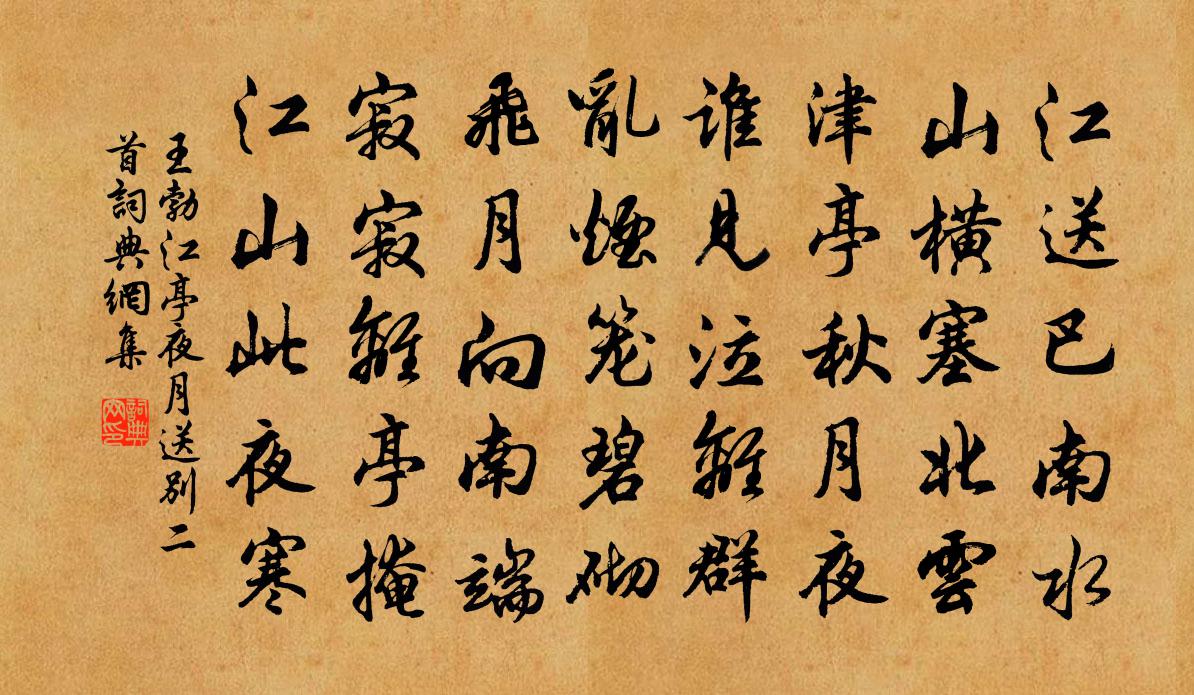 江送巴南水
山橫塞北雲
津亭秋月夜
誰見泣離群
亂煙笼碧砌
飛月向南端
寂寂離亭掩
江山此夜寒
王勃江亭夜月送別二
首詞典網集
詞典网印